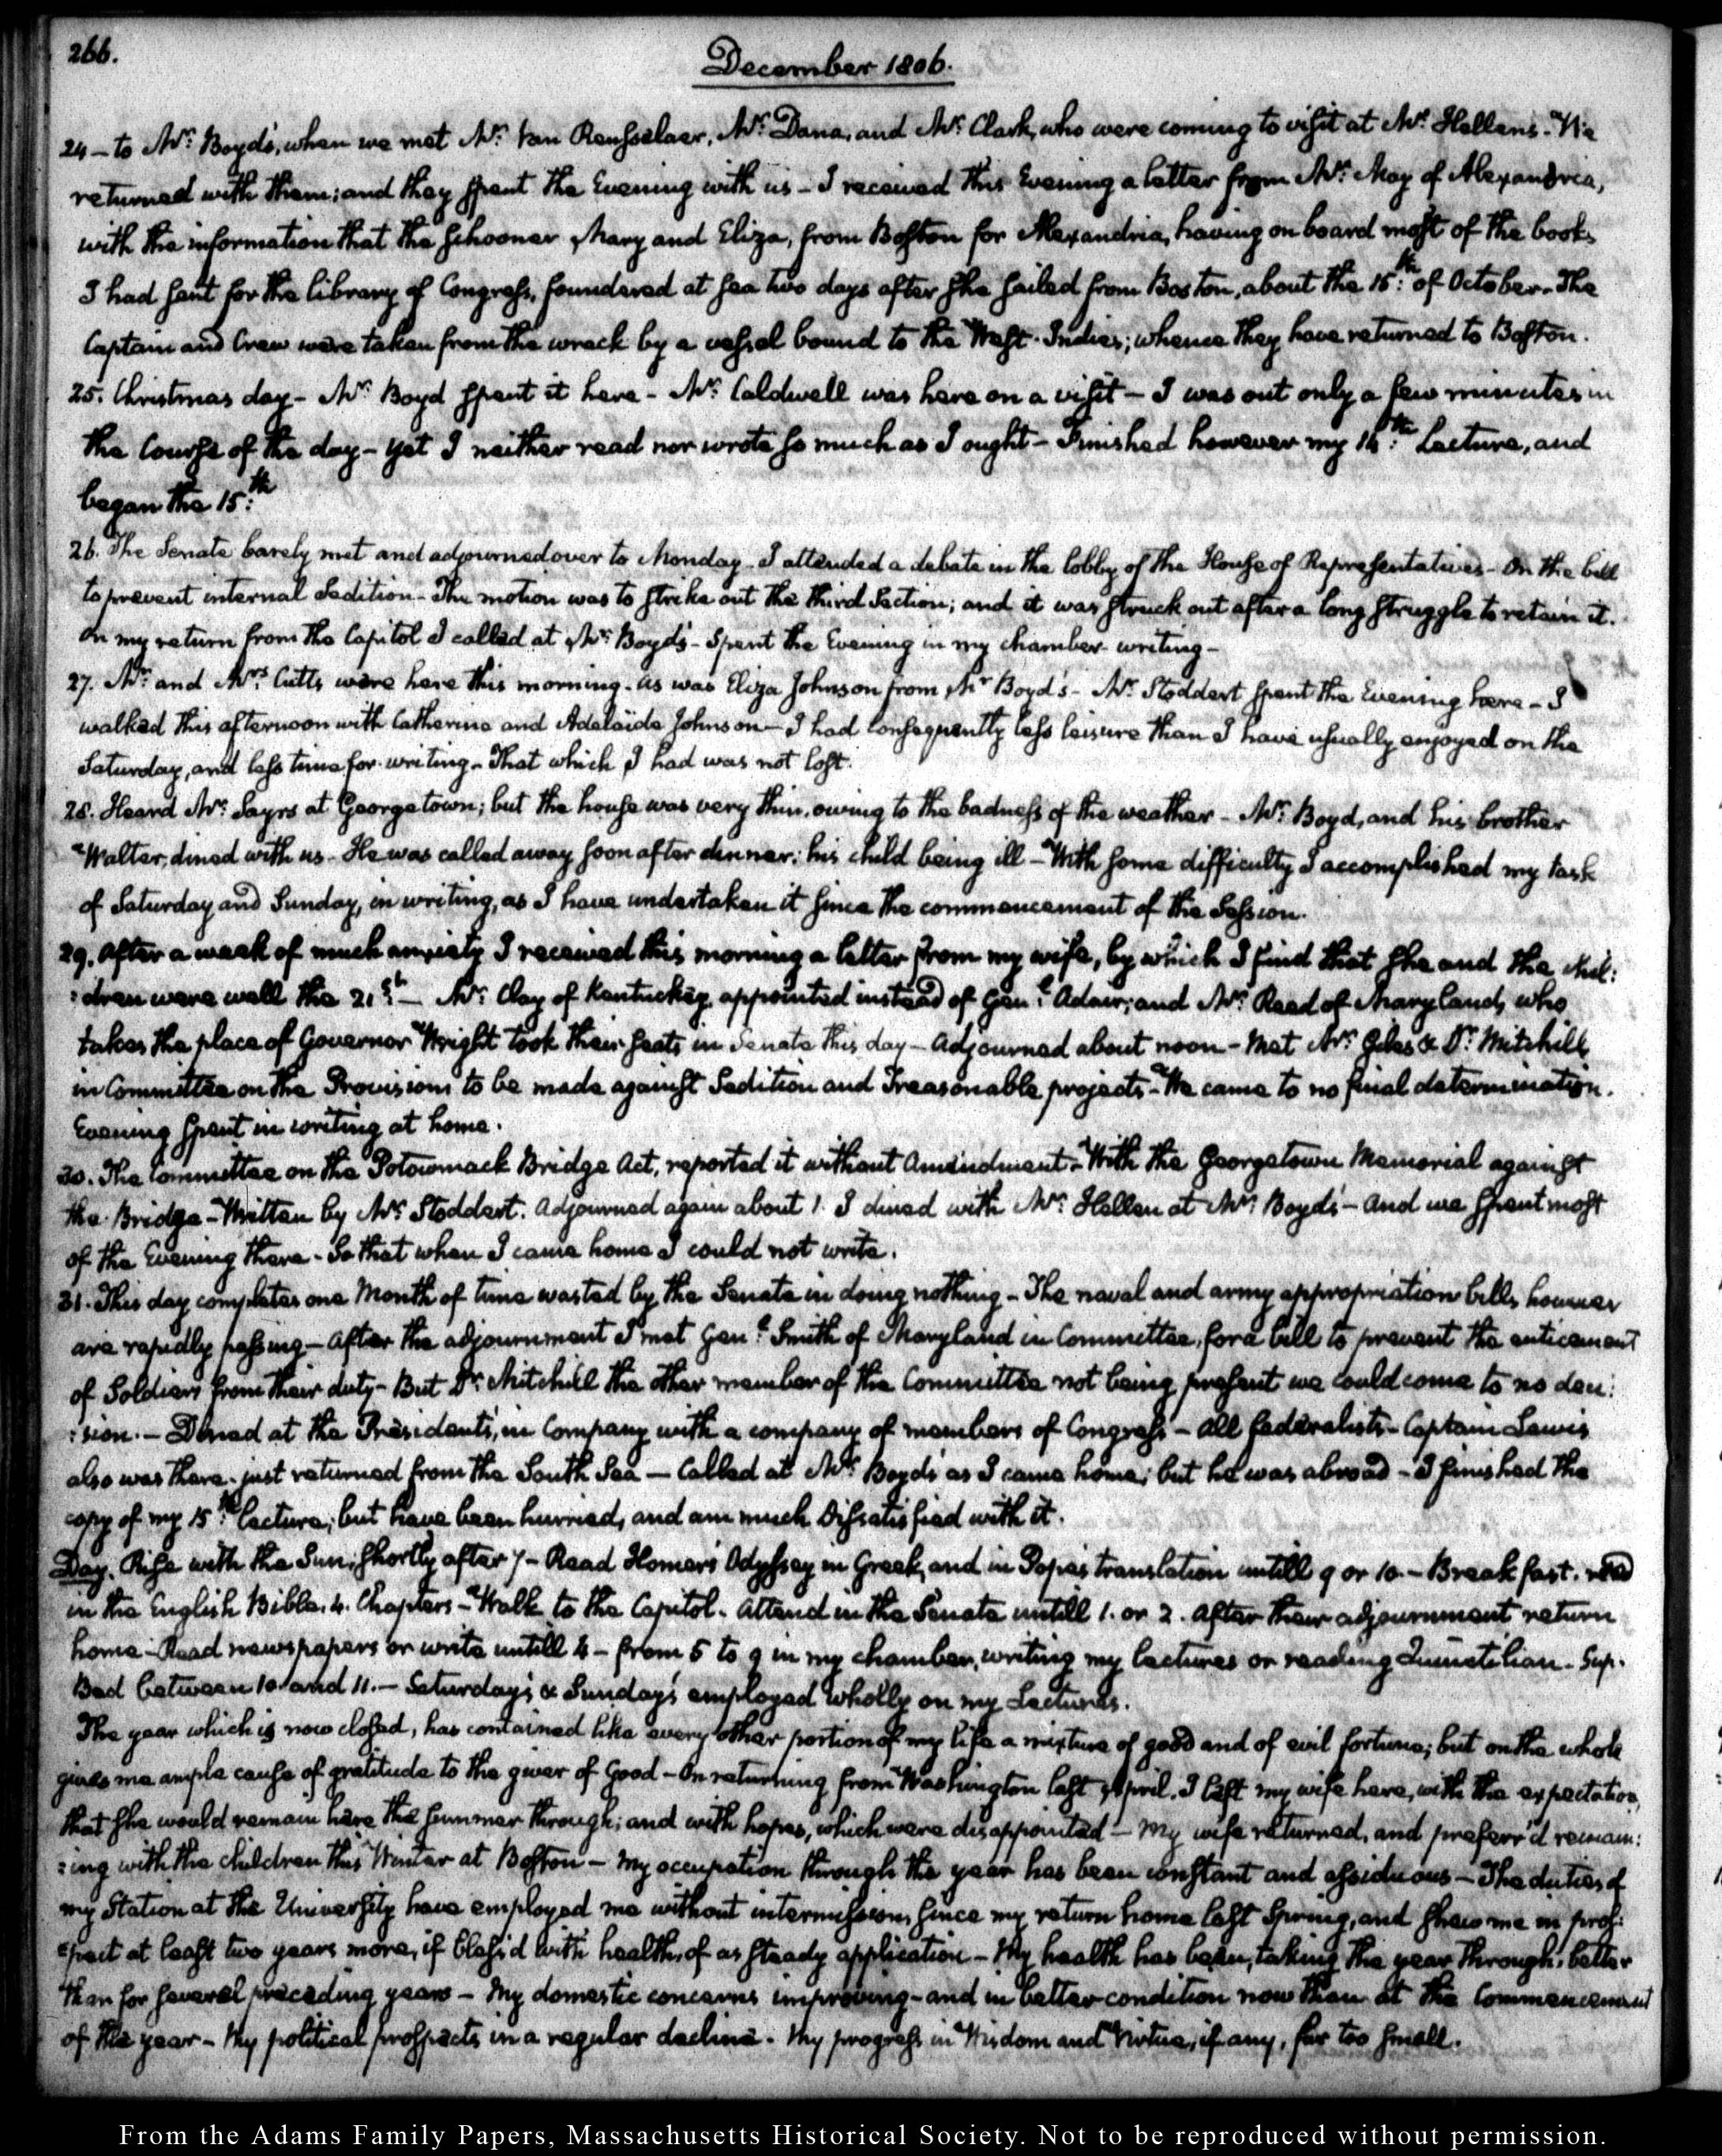 266.
December 1806.
24 - to Mr: Boyd's, when we met Mr: Van Rensselaer, Mr: Dana, and Mr: Clark, who were coming to visit at Mr: Hellens. We
returned with them; and they spent the Evening with us - I received this Evening a letter from Mr: May of Alexandria,
with the information that the schooner Mary and Eliza, from Boston for Alexandria, having on board most of the books
I had sent for the library of Congress, foundered at sea two days after she sailed from Boston, about the 15:th of October. The
Captain and Crew were taken from the wreck by a vessel bound to the West-Indies; whence they have returned to Boston.
25. Christmas day - Mr: Boyd spent it here - Mr: Caldwell was here on a visit - I was out only a few minutes in
the Course of the day - yet I neither read nor wrote so much as I ought - Finished however my 14:th Lecture, and
began the 15:th
26. The Senate barely met and adjourned over to Monday. I attended a debate in the lobby of the House of Representatives - On the bill
to prevent internal Sedition - The motion was to strike out the third Section; and it was struck out after a long struggle to retain it.
On my return from the Capitol I called at Mr: Boyd's - Spent the Evening in my chamber writing -
27. Mr: and Mrs: Cutts were here this morning. as was Eliza Johnson from Mr Boyd's - Mr: Stoddert spent the Evening here - I
walked this afternoon with Catherine and Adelaide Johnson - I had consequently less leisure than I have usually enjoyed on the
Saturday, and less time for writing - That which I had was not lost.
28. Heard Mr: Sayrs at Georgetown; but the house was very thin, owing to the badness of the weather - Mr: Boyd, and his brother
Walter, dined with us - He was called away soon after dinner: his child being ill - With some difficulty I accomplished my task
of Saturday and Sunday, in writing, as I have undertaken it since the commencement of the Session.
29. After a week of much anxiety I received this morning a letter from my wife, by which I find that she and the chil:
:dren were well the 21:st - Mr: Clay of Kentuckey, appointed instead of Genl: Adair; and Mr: Reed of Maryland, who
takes the place of Governor Wright took their seats in Senate this day - Adjourned about noon - Met Mr: Giles & Dr: Mitchill
in Committee on the Provisions to be made against Sedition and Treasonable projects - We came to no final determination.
Evening spent in writing at home.
30. The Committee on the Potowmack Bridge Act, reported it without Amendment - With the Georgetown Memorial against
the Bridge - Written by Mr: Stoddert. Adjourned again about 1. I dined with Mr: Hellen at Mr: Boyd's - And we spent most
of the Evening there - So that when I came home I could not write.
31. This day completes one Month of time wasted by the Senate in doing nothing - The naval and army appropriation bills however
are rapidly passing - After the adjournment I met Genl: Smith of Maryland in Committee, for a bill to prevent the enticement
of Soldiers from their duty - But Dr: Mitchill the other member of the Committee not being present we could come to no deci:
:sion. - Dined at the President's, in Company with a company of members of Congress - All federalists - Captain Lewis
also was there, just returned from the South Sea - Called at Mr: Boyd's as I came home; but he was abroad - I finished the
copy of my 15:th Lecture; but have been hurried, and am much dissatisfied with it.
Day. Rise with the Sun, shortly after 7 - Read Homer's Odyssey in Greek, and in Pope's translation untill 9 or 10. - Breakfast. read
in the English Bible. 4. Chapters - Walk to the Capitol. Attend in the Senate untill 1. or 2. After their adjournment return
home - Read newspapers or write untill 4 - from 5 to 9 in my chamber, writing my lectures or reading Quinctilian - Sup.
Bed between 10 and 11. - Saturday's & Sunday's employed wholly on my Lectures.
The year which is now closed, has contained like every other portion of my life a mixture of good and of evil fortune; but on the whole
gives me ample cause of gratitude to the giver of Good - On returning from Washington last April. I left my wife here, with the expectation,
that she would remain here the summer through; and with hopes, which were disappointed - My wife returned, and preferr'd remain:
:ing with the children this Winter at Boston - My occupation through the year has been constant and assiduous - The duties of
my Station at the University have employed me without intermission, since my return home last Spring, and shew me in pros:
:pect at least two years more, if bless'd with health, of as steady application - My health has been, taking the year through, better
than for several preceding years - My domestic concerns improving - and in better condition now than at the Commencement
of the year - My political prospects in a regular decline. My progress in Wisdom and Virtue, if any, far too small.
From the Adams Family Papers, Massachusetts Historical Society. Not to be reproduced without permission.